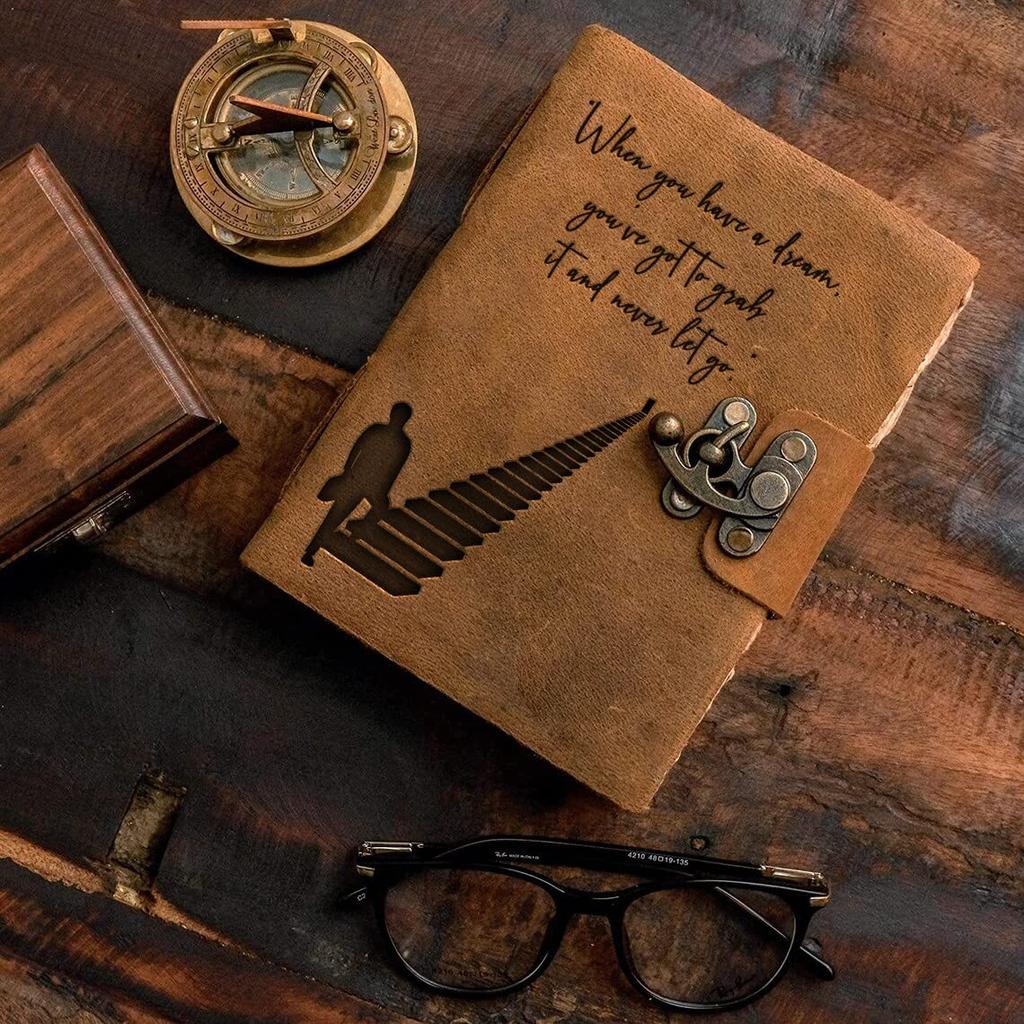 When you have a dream,
you've got to grab
it and never let go.
Ray-Ban MADE IN ITALY
4210 48□19-135